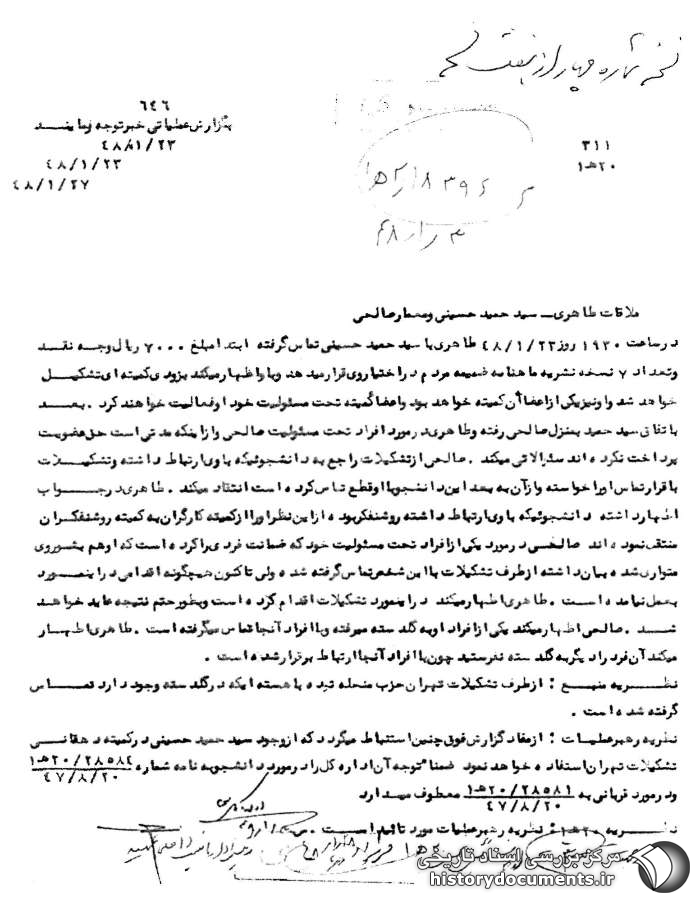 نسخه شماره چهار از هفت نسخه
۶۴۶
بگزارش عملیاتی خبر توجه فرمایند
۳۱۱
۲۰ه‍۱
۴۸/۱/۲۳
۴۸/۱/۲۳
۴۸/۱/۲۷
ملاقات طاهری ـ سید حمید حسینی ومعمار صالحی
در ساعت ۱۹۳۰ روز ۴۸/۱/۲۳ طاهری با سید حمید حسینی تماس گرفته ابتدا مبلغ ۷۰۰۰ ریال وجه نقد
وتعداد ۷ نسخه نشریه ماهنامه ضمیمه مردم در اختیار وی قرار میدهد وباو اظهار میکند بزودی کمیته ای تشکیل
خواهد شد واو نیز یکی از اعضا آن کمیته خواهد بود واعضا کمیته تحت مسئولیت خود او فعالیت خواهند کرد . بعد
با تفاق سید حمید بمنزل صالحی رفته وطاهری در مورد افراد تحت مسئولیت صالحی واز اینکه مدتی است حق عضویت
پرداخت نکرده اند سئوالاتی میکند . صالحی از تشکیلات راجع به دانشجوئیکه با وی ارتباط داشته وتشکیلات
با قرار تماس او را خواسته واز آن به بعد این دانشجو با او قطع تماس کرده است انتقاد میکند . طاهری در جواب
اظهار داشته دانشجوئیکه با وی ارتباط داشته روشنفکر بوده از این نظر او را از کمیته کارگران به کمیته روشنفکران
منتقل نموده اند صالحی در مورد یکی از افراد تحت مسئولیت خود که ضمانت فردی را کرده است که او هم بشوروی
متواری شده بیان داشته از طرف تشکیلات با این شخص تماس گرفته شده ولی تاکنون هیچگونه اقدامی در اینمورد
بعمل نیامده است . طاهری اظهار میکند در اینمورد تشکیلات اقدام کرده است وبطور حتم نتیجه عاید خواهد
شد . صالحی اظهار میکند یکی از افراد او به گلدسته میرفته وبا افراد آنجا تماس میگرفته است . طاهری اظهار
میکند آن فرد را دیگر به گلدسته نفرستید چون با افراد آنجا ارتباط برقرار شده است .
نظریه منبع : از طرف تشکیلات تهران حزب منحله توده با هسته ایکه در گلدسته وجود دارد تماس
گرفته شده است .
نظریه رهبر عملیات : از مفاد گزارش فوق چنین استنباط میگردد که از وجود سید حمید حسینی در کمیته دهقانی
تشکیلات تهران استفاده خواهد نمود ضمناً توجه آن اداره کل را در مورد دانشجو به نامه شماره ۲۰/۲۸۵۸۴ه‍۱
۴۷/۸/۲۰
ودر مورد قربانی به ۲۰/۲۸۵۸۱ه‍۱ معطوف میدارد
۴۷/۸/۲۰
نظریه ۲۰ه‍۱ : نظریه رهبر عملیات مورد تائید است .
مرکز بررسی اسناد تاریخی
historydocuments.ir